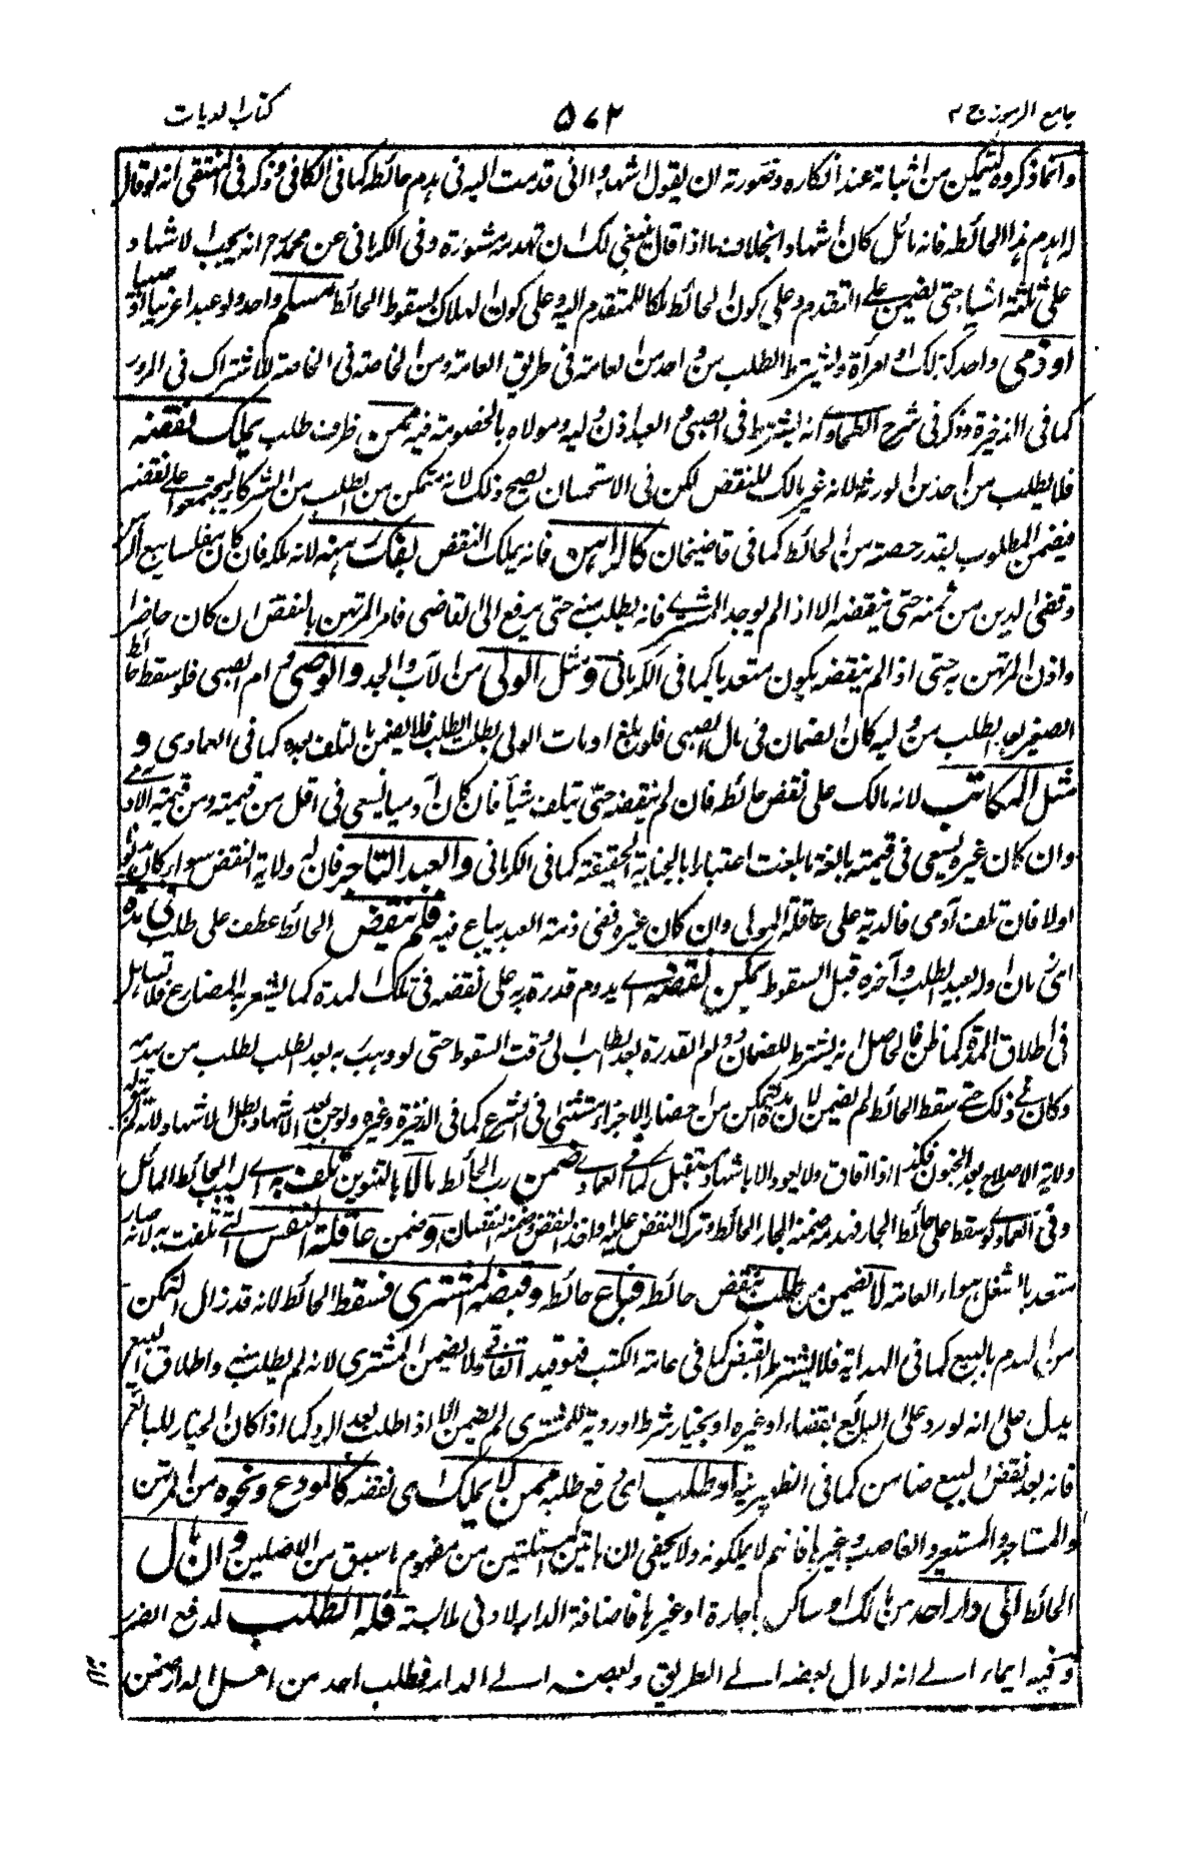 جامع الرموز ج ٢
٥٧٢
كتاب الديات
وانما ذكروه ليتمكن من اثباته عند انكاره وصورته ان يقول اشهدوا انى قدمت اليه فى هدم حائطه كما فى الكافى وذكر فى المنتقى انه لو قال
له اهدم هذا الحائط فانه مائل كان اشهادا بخلاف ما اذا قال ينبغى لك ان تهدمه مشورة وفى الكرمانى عن محمد رح انه يجب الاشهاد
على ثلثة اشياء حتى يضمن على التقدم وعلى كون الحائط ملكا للمتقدم اليه وعلى كون الهلاك بسقوط الحائط مسلم واحد ولو عبدا غريبا او صبيا
او ذمى واحد كذلك او امرأة ولم يشترط الطلب من واحد من العامة فى طريق العامة ومن الخاصة فى الخاصة للاشتراك فى المرور
كما فى الذخيرة وذكر فى شرح الطحاوى انه يشترط فى الصبى والعبد اذن وليه ومولاه بالخصومة فيه ممن ظرف طلب يملك نقضه
فلا يطلب من احد من الورثة لانه غير مالك للنقض لكن فى الاستحسان يصح ذلك لانه متمكن من الطلب من الشركاء ليجتمعوا على نقضه
فيضمن المطلوب بقدر حصته من الحائط كما فى قاضيخان كالراهن فانه يملك النقض بفك رهنه لانه ملكه فان كان مفلسا يبيع الرهن
وقضى الدين من ثمنه حتى ينقضه الا اذا لم يوجد المشترى فانه يطلب منه حتى يرفع الى القاضى فامر المرتهن بالنقض ان كان حاضرا
واذن المرتهن به حتى اذا لم ينقضه يكون متعديا كما فى الكرمانى ومثل الولى من الاب والجد والوصى وام الصبى فلو سقط حائط
الصغير بعد الطلب من وليه كان الضمان فى مال الصبى فلو بلغ او مات الولى بطل الطلب فلا يضمن بالتلف بعده كما فى العمادى و
مثل المكاتب لانه مالك على نقض حائطه فان لم ينقضه حتى تلف شيأ فان كان آدميا يسعى فى اقل من قيمته ومن قيمة الادمى
وان كان غيره يسعى فى قيمته بالغة ما بلغت اعتبارا بالجناية الحقيقة كما فى الكرمانى والعبد التاجر فان له ولاية النقض سواء كان مديونا
اولا فان تلف آدمى فالدية على عاقلة المولى وان كان غيره ففى ذمة العبد يباع فيه فلم ينقض الحائط عطف على طلب فى مدة
اى زمان اوله بعيد الطلب وآخره قبل السقوط يمكن نقضه اى يدوم قدرة ربه على نقضه فى تلك المدة كما يشعر به المضارع فلا تساهل
فى اطلاق المدة كما ظن فالحاصل انه يشترط للضمان دوام القدرة بعد الطلب الى وقت السقوط حتى لو ذهب ربه بعد الطلب لطلب من يهدمه
وكان فى ذلك حتى سقط الحائط لم يضمن لان مدة التمكن من احضار الاجراء مستثنى فى الشرع كما فى الذخيرة وغيره ولو جن بعد الاشهاد بطل الاشهاد لانه لم يبق له
ولاية الاصلاح بعد الجنون فكذا اذا افاق ولا يعود الا باشهاد مستقبل كما فى العمادى ضمن رب الحائط مالا بالتنوين تلف به اى بسبب الحائط المائل
وفى العمادى لو سقط على حائط الجار فهدمه ضمنه الجار الحائط وترك النقض عليه واخذ النقض ضمنه النقصان وضمن عاقلة النفس التى تلفت به لانه صار
متعديا اشغل هواء العامة لا يضمن من طلب بنقض حائطه فباع حائطه وقبضه المشترى فسقط الحائط لانه قد زال التمكن
من الهدم بالبيع كما فى الهداية فلا يشترط القبض كما فى عامة الكتب فهو قيد اتفاقى ولا يضمن المشترى لانه لم يطلب منه واطلاق البيع
يدل على انه لو رد على البائع بقضاء او غيره او بخيار شرط او روية للمشترى لم يضمن الا اذا طلب بعد الرد كما اذا كان الخيار للبائع
فانه بعد نقض البيع ضامن كما فى الظهيرية او طلب اى وقع طلبه ممن لا يملك اى نقضه كالمودع ونحوه من المرتهن
والمستاجر والمستعير والغاصب وغيرها فانهم لا يملكونه ولا يخفى ان هاتين المسئلتين من مفهوم ما سبق من الاصلين وان مال
الحائط الى دار احد من مالك او ساكن باجارة او غيرها فاضافة الدار لادنى ملابسة فله الطلب لدفع الضرر
وفيه ايماء الى انه لو مال بعضه الى الطريق وبعضه الى الدار فطلب احد من اهل الدار ضمن